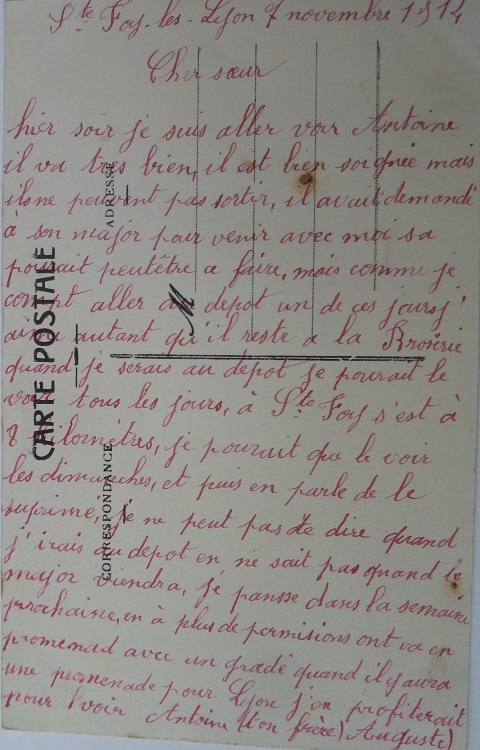 Ste Foy-les-Lyon 7 novembre 1914
Cher sœur
hier soir je suis aller voir Antoine
il va tres bien, il est bien soignée mais
ils ne peuvent pas sortir, il avait demandé
à son major pour venir avec moi sa
pourait peutêtre ce faire, mais comme je
compt aller au depot un de ces jours j'
aime autant qu'il reste a la
quand je serais au depot je pourait le
voir tous les jours, à Ste Foy s'est à
8 kilomètres, je pourait que le voir
les dimanches, et puis en parle de le
suprimé, je ne peut pas te dire quand
j'irais au depot en ne sait pas quand le
major viendra, je pansse dans la semaine
prochaine, en à plus de permisions ont va en
promenad avec un gradé quand il y aura
une promenade pour Lyon j'en profiterait
pour l'voir Antoine (ton frère) Auguste)
CARTE POSTALE
CORRESPONDANCE
ADRESSE
M